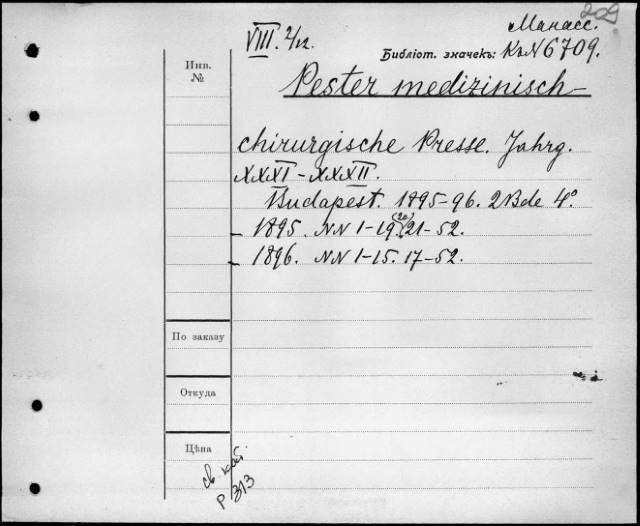 209
Манасс.
VIII. 2/12.
Библіот. значекъ: К. №6709.
Инв.
№
Pester medizinisch-
chirurgische Presse. Jahrg.
XXXI-XXXII.
Budapest. 1895-96. 2 Bde 4°
- 1895. NN 1-19. (20) 21-52.
- 1896. NN 1-15. 17-52.
По заказу
Откуда
Цѣна
св кат.
P 313